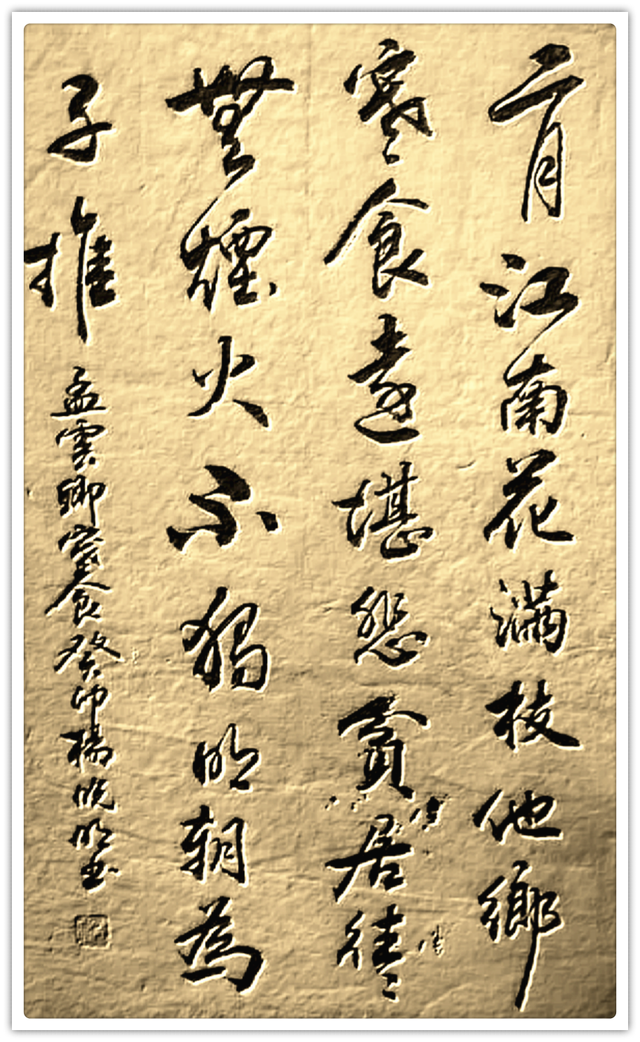 二月江南花滿枝他鄉
寒食遠堪悲貧居往々
無煙火不獨明朝為
子推
孟雲卿寒食癸卯楊晓明书